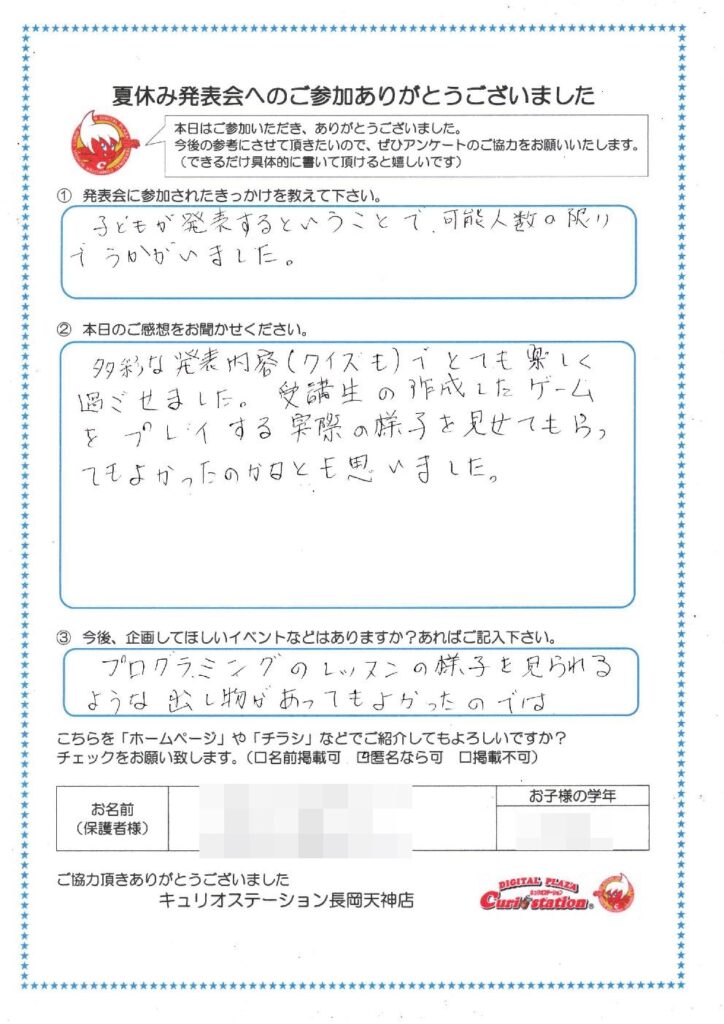 夏休み発表会へのご参加ありがとうございました
本日はご参加いただき、ありがとうございました。
今後の参考にさせて頂きたいので、ぜひアンケートのご協力をお願いいたします。
（できるだけ具体的に書いて頂けると嬉しいです）
① 発表会に参加されたきっかけを教えて下さい。
子どもが発表するということで、可能人数の限り
でうかがいました。
② 本日のご感想をお聞かせください。
多彩な発表内容(クイズも)でとても楽しく
過ごせました。受講生の作成したゲーム
をプレイする実際の様子を見せてもらっ
てもよかったのかなとも思いました。
③ 今後、企画してほしいイベントなどはありますか？あればご記入下さい。
プログラミングのレッスンの様子を見られる
ような出し物があってもよかったのでは
こちらを「ホームページ」や「チラシ」などでご紹介してもよろしいですか？
チェックをお願い致します。（☐名前掲載可 ☑匿名なら可 ☐掲載不可）
お名前
（保護者様）
お子様の学年
ご協力頂きありがとうございました
キュリオステーション長岡天神店
DIGITAL PLAZA
キュリオステーション
Curiostation®